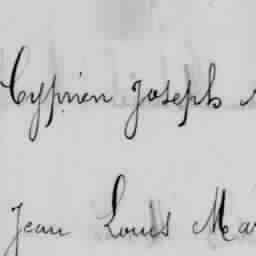 Cyprien Joseph
Jean Louis Ma